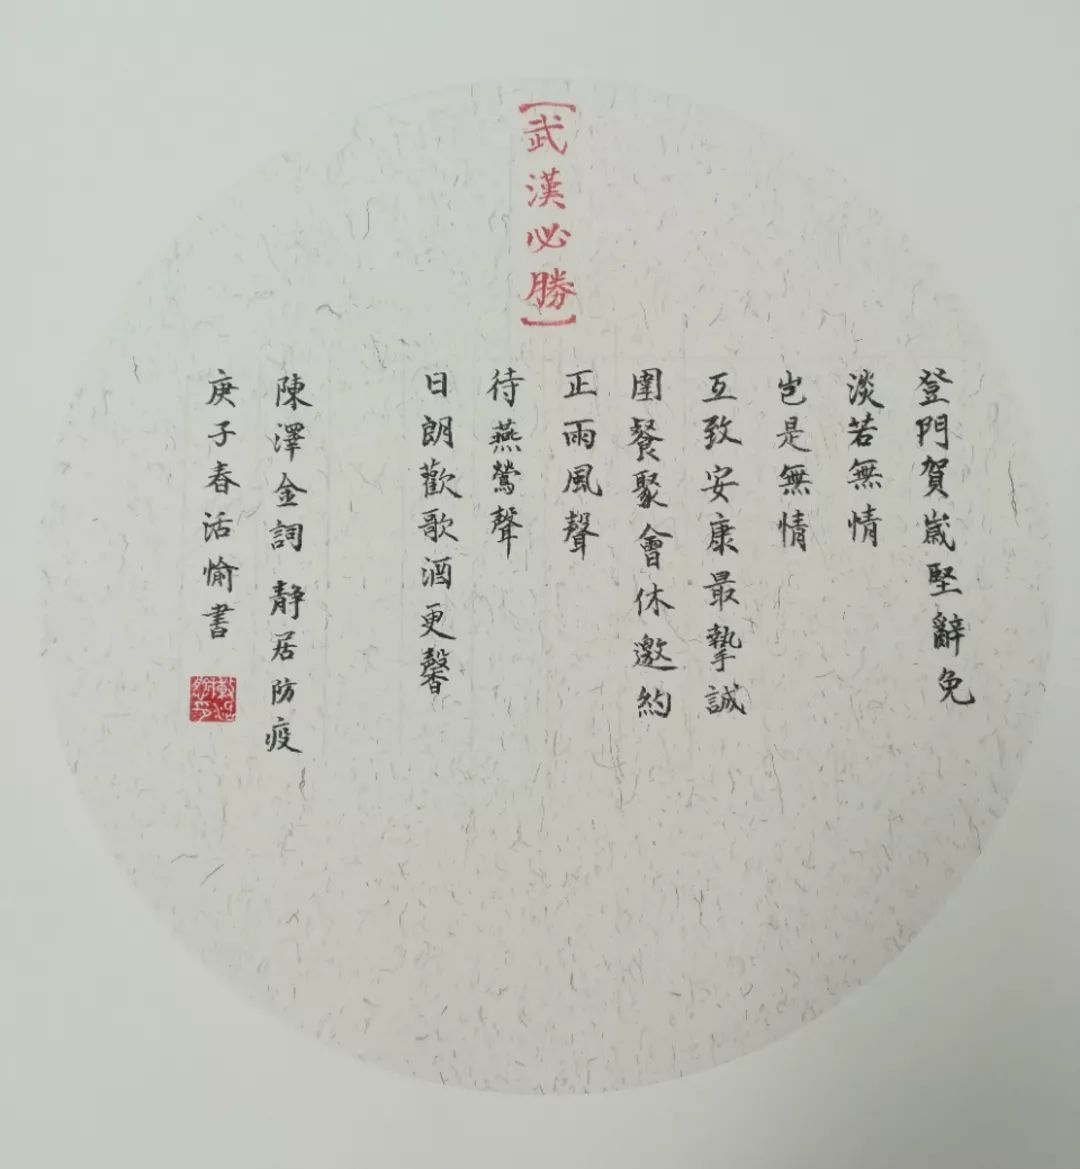 【武漢必勝】
登門賀歲堅辭免
淡若無情
岂是無情
互致安康最摯誠
圍餐聚會休邀約
正雨風聲
待燕鶯聲
日朗歡歌酒更馨
陳澤金詞 靜居防疫
庚子春活愉書